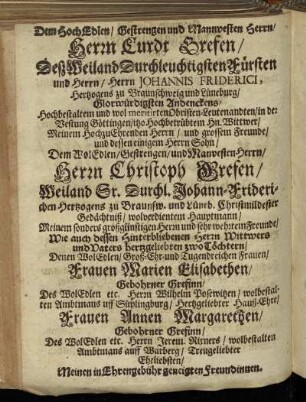 Dem HochEdlen/ Gestrengen und Mannvesten Herrn/
Herrn Curdt Grefen/
Deß Weiland Durchleuchtigsten Fürsten
und Herrn/ Herrn JOHANNIS FRIDERICI,
Hertzogens zu Braunschweig und Lüneburg/
Glorwürdigsten Andenckens/
Hochbestaltem und wol meritirten Obristen-Leutenandten/in der
Vestung Göttingen/itzo Hochbetrübtem Hn. Wittwer/
Meinem HochzuEhrenden Herrn/ und grossem Freunde/
und dessen einigem Herrn Sohn/
Dem WolEdlen/Gestrengen/ und Manvesten Herrn/
Herrn Christoph Grefen/
Weiland Sr. Durchl. Johann-Frideri-
chen Hertzogens zu Braunsw. und Lüneb. Christmildester
Gedächtniß/ wolverdientem Hauptmann/
Meinem sonders großgünstigen Herrn und sehr wehrtem Freunde/
Wie auch dessen Hinterbliebenen Herrn Wittwers
und Vaters hertzgeliebten zwo Töchtern/
Denen WolEdlen/ Groß-Ehr-und Tugendreichen Frauen/
Frauen Marien Elisabethen/
Gebohrner Grefinn/
Des WolEdlen etc. Herrn Wilhelm Postvithen/ wolbestal-
ten Ambtmans uff Sibbingburg/ Hertzgeliebter Hauß-Ehre/
Frauen Annen Margarethen/
Gebohrner Grefinn/
Des WolEdlen etc. Herrn Jerem. Rijmers/ wolbestalten
Ambtmans auff Warberg/ Treugeliebter
Eheliebsten/
Meinen in Ehrengebühr geneigten Freundinnen.